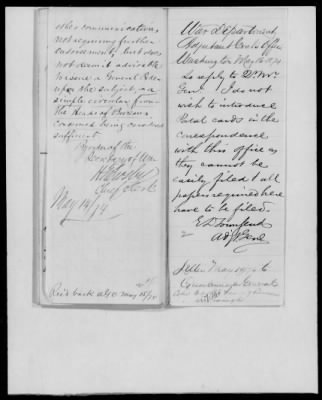 other communications
not requiring further
endorsements, but does
not deem it advisable
to issue a General Order
upon the subject, as a
simple circular from
the Heads of Bureaus
concerned being considered
sufficient.
By order of the
Secretary of War
H. T. Crosby
Chief Clerk
May 14/74
Rec'd back AGO May 15/74
War Department,
Adjutant Genl's Office
Washington, May 16, 1874
In reply to Qr. Mr.
Genl. I do not
wish to introduce
Postal cards in the
correspondence
with this office as
they cannot be
easily filed & all
papers required here
have to be filed.
E. D. Townsend
Adjt. Genl.
Quartermaster General